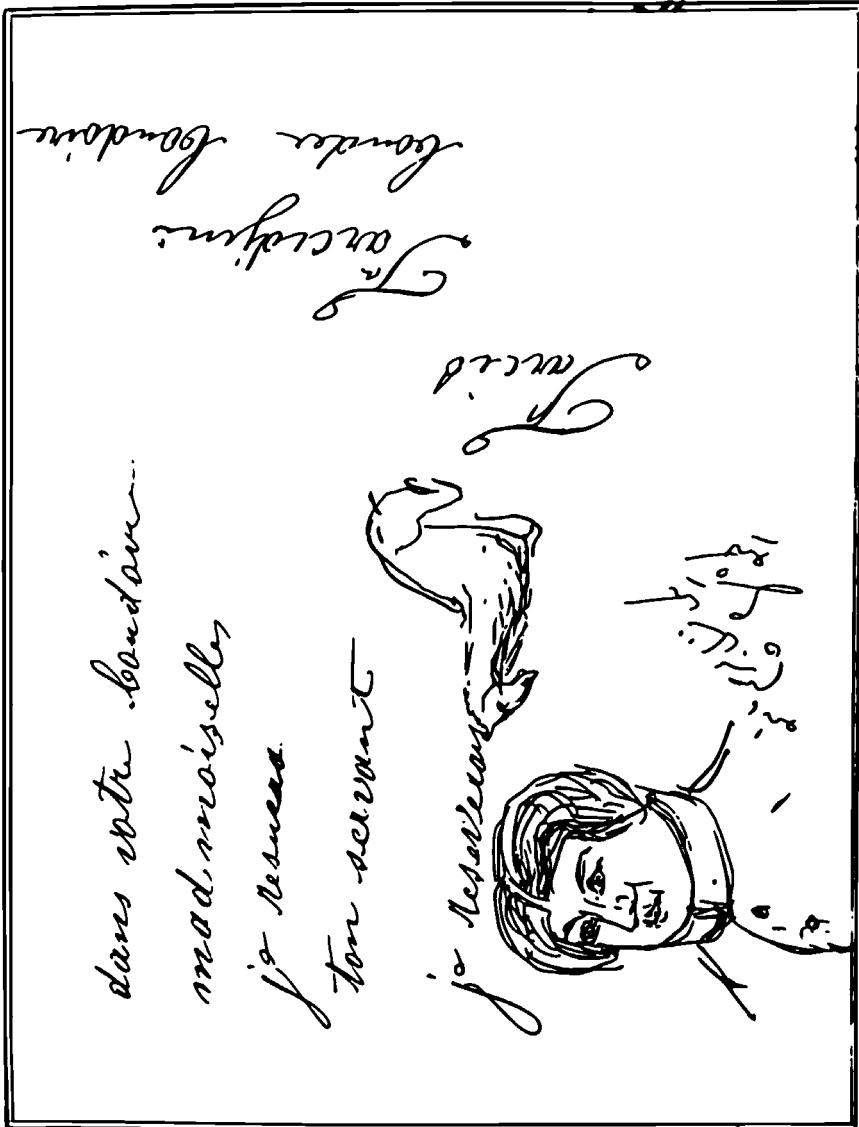 dans votre boudoir
mad moiselles
je resuces
ton servant
je reserveeur
Tarcis
Tarcidjeni
bouder boudoire